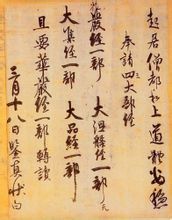 起居僧都和上道體安穩
奉請四大部經
嚴經一部 大涅槃經一部
大集經一部 大品經一部
且要華嚴經一部轉讀
三月十八日鑒真狀白